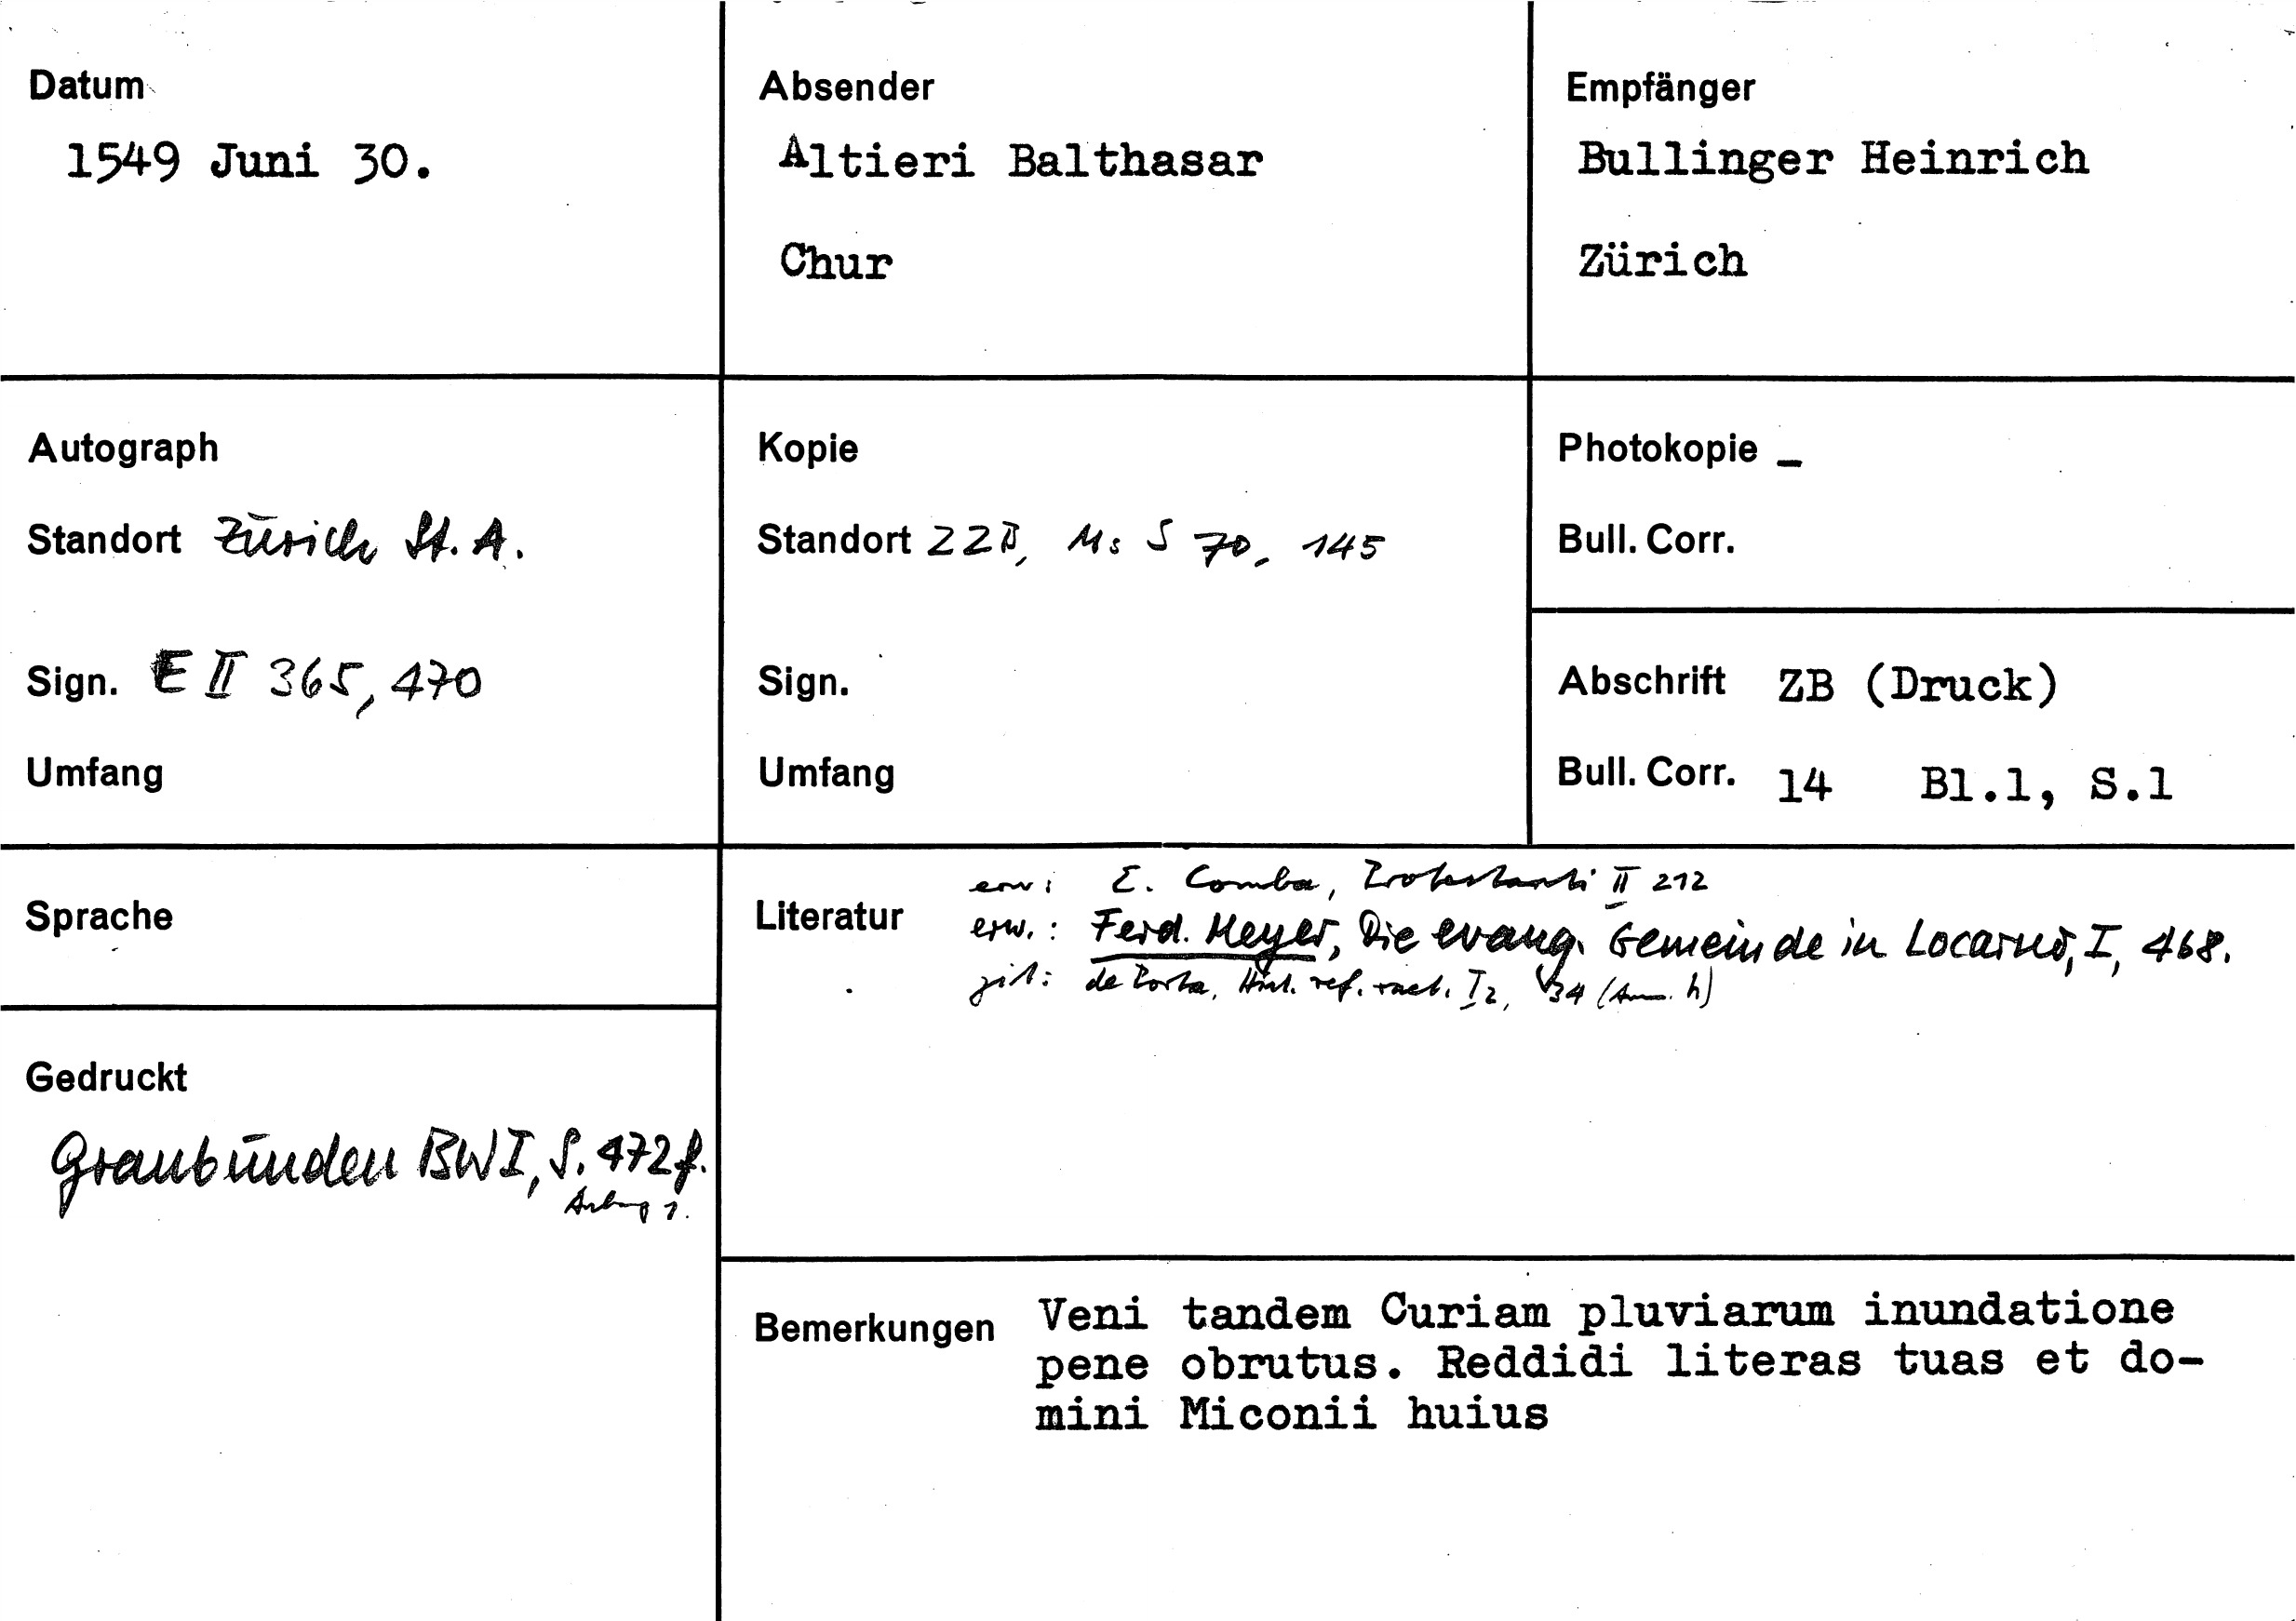 Datum
1549 Juni 30.
Absender
Altieri Balthasar
Chur
Empfänger
Bullinger Heinrich
Zürich
Autograph
Standort Zürich St. A.
Sign. E II 365, 470
Umfang
Kopie
Standort ZZB, Ms S 70, 145
Sign.
Umfang
Photokopie –
Bull. Corr.
Abschrift ZB (Druck)
Bull. Corr. 14 Bl.1, S.1
Sprache
Gedruckt
Graubünden BW I, S. 472 f.
Anhang 1.
Literatur
erw: E. Comba, Protestanti II 212
erw.: Ferd. Meyer, Die evang. Gemeinde in Locarno, I, 468.
zit: de Porta, Hist. ref. raet. I 2, 34 (Anm. h)
Bemerkungen
Veni tandem Curiam pluviarum inundatione
pene obrutus. Reddidi literas tuas et do-
mini Miconii huius